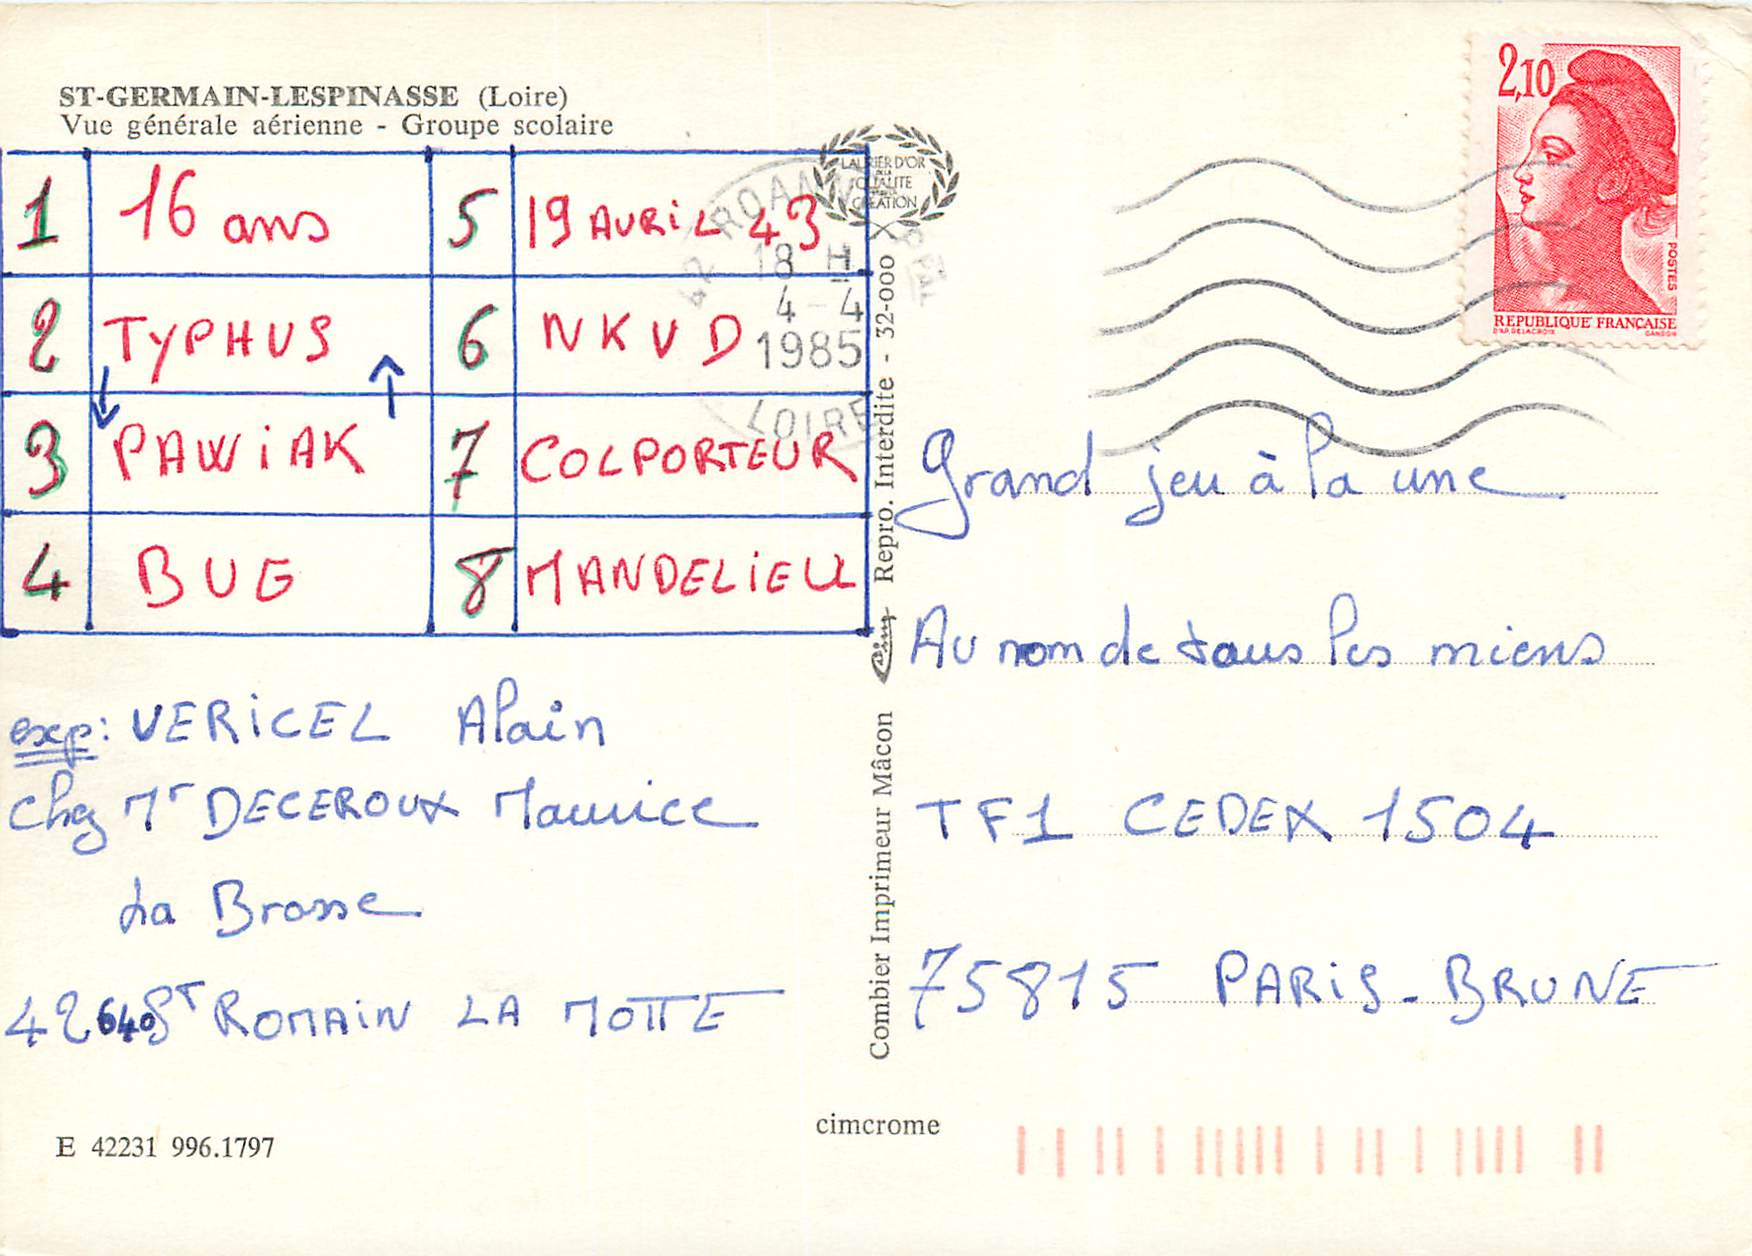 ST-GERMAIN-LESPINASSE (Loire)
Vue générale aérienne - Groupe scolaire
2,10
POSTES
REPUBLIQUE FRANÇAISE
D'AP. DELACROIX
GANDON
LAURIER D'OR
DE LA
QUALITE
CREATION
42 ROANNE
18 H
4-4
1985
LOIRE
1 16 ans 5 19 AVRIL 43
2 TYPHUS 6 NKVD
↓ ↑
3 PAWIAK 7 COLPORTEUR
4 BUG 8 MANDELIEU
exp: VERICEL Alain
Chez Mr DECEROUX Maurice
La Brosse
42640 ST ROMAIN LA MOTTE
E 42231 996.1797
Combier Imprimeur Mâcon Cim Repro. Interdite - 32-000
cimcrome
Grand jeu à la une
Au nom de tous les miens
TF1 CEDEX 1504
75815 PARIS-BRUNE